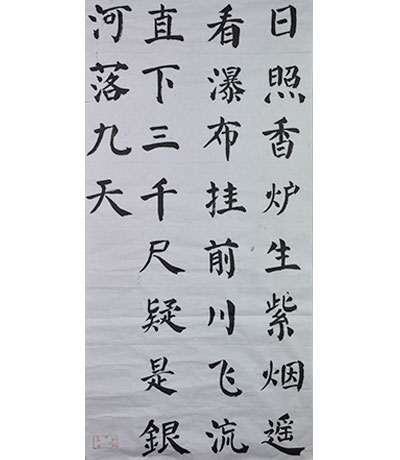 日照香炉生紫烟遥
看瀑布挂前川飞流
直下三千尺疑是銀
河落九天